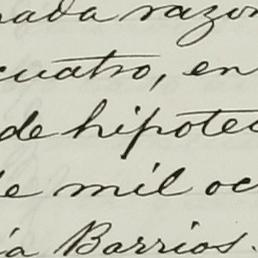 nada razon
cuatro, en
de hipotec
de mil oc
ía Barrios.